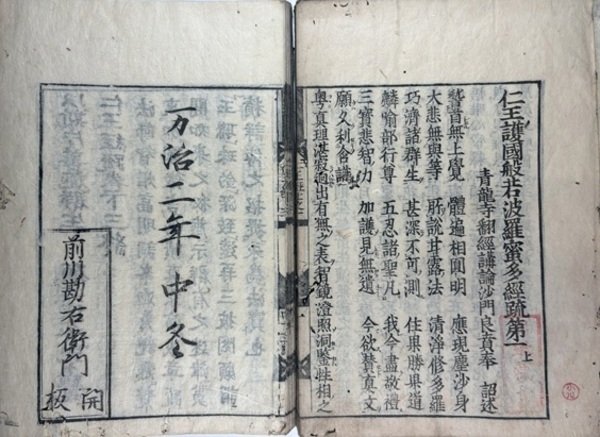 仁王護國般若波羅蜜多經疏第一 上
青龍寺翻經講論沙門良賁奉 詔述
稽首無上覺 體遍相圓明 應現塵沙身
大悲無與等 所說甘露法 清淨修多羅
巧濟諸群生 甚深不可測 住果勝果道
麟喻部行尊 五忍諸聖凡 我今盡敬禮
三寶悲智力 加護見無遺 今欲賛真文
願久利含識
粤真理湛寂迥出有無之表智鏡澄照洞鑒性相之
万治二年中冬
前川勘右衛門
開板